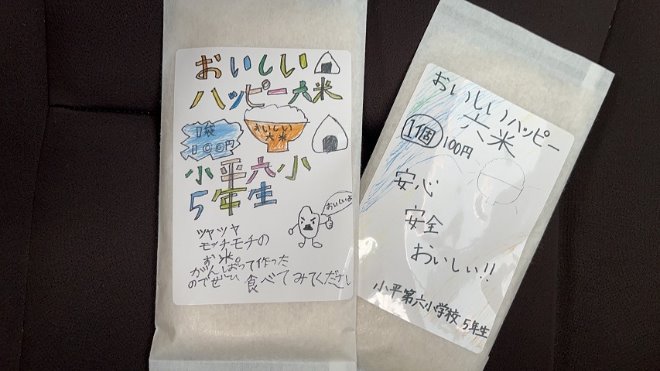 おいしい
ハッピー六米
1袋
100円
おいしい
六米
小平六小
5年生
おいしいよ
ツヤツヤ
モッチモチの
お米。
がんばって作った
のでぜひ食べてみてください
おいしいハッピー
六米
1個 100円
安心
安全
おいしい!!
小平第六小学校 5年生